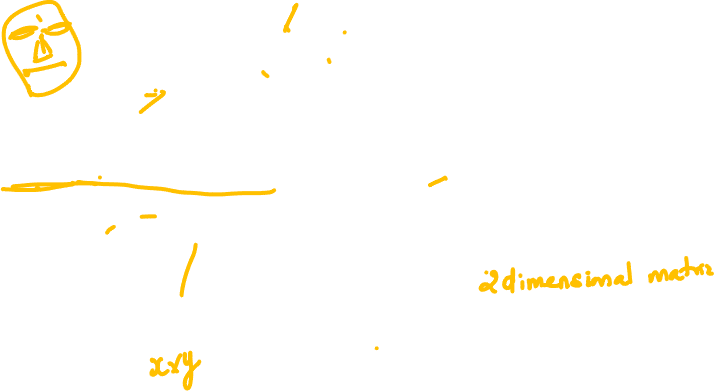 2 dimensional matrix
x x y